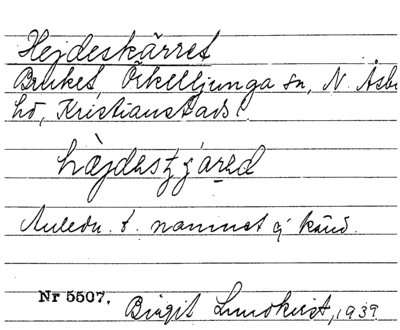 Hejdeskärret
Bruket, Örkelljunga sn, N. Åsbo
hd, Kristianstads l.
Anledn. t. namnet ej känd.
Nr 5507. Birgit Lundkvist, 1939